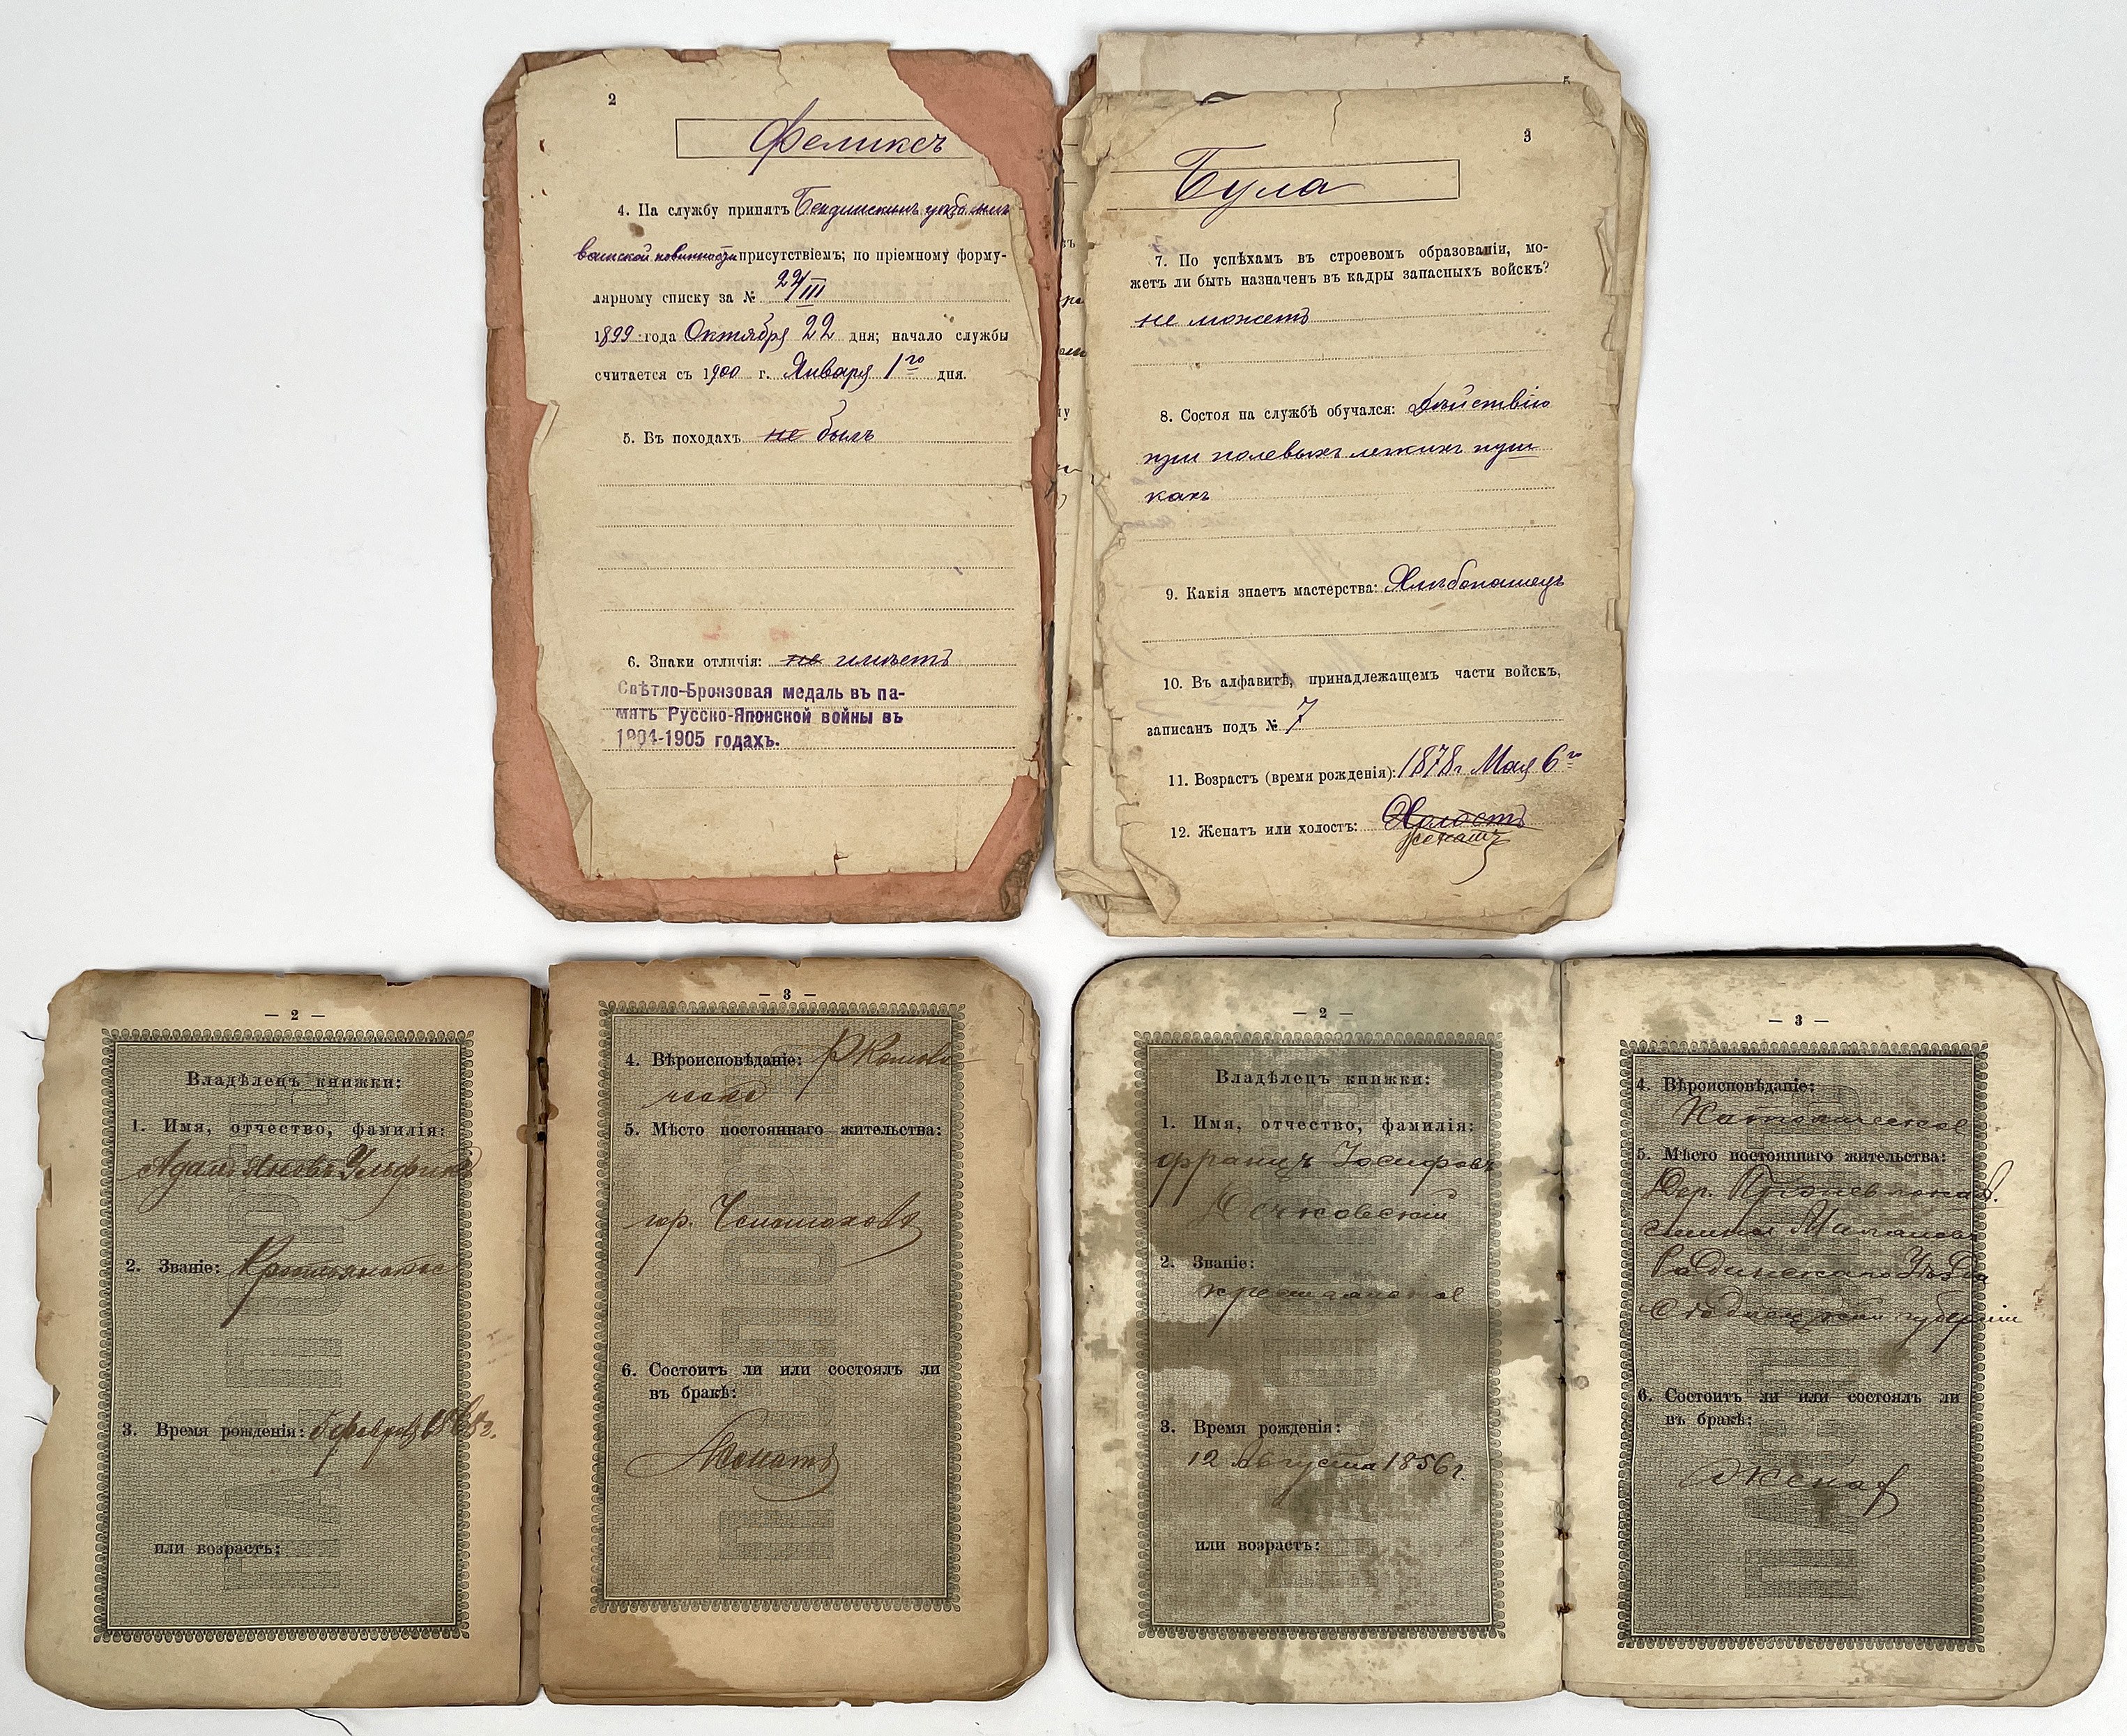 2
Феликсъ
4. На службу принятъ Бендинскимъ уѣзднымъ
воинской повинности присутствіемъ; по пріемному форму-
лярному списку за № 22/III
1899 года Октября 22 дня; начало службы
считается съ 1900 г. Января 1го дня.
5. Въ походахъ не былъ
6. Знаки отличія: не имѣетъ
Свѣтло-Бронзовая медаль въ па-
мять Русско-Японской войны въ
1904-1905 годахъ.
5
3
Була
7. По успѣхамъ въ строевомъ образованіи, мо-
жетъ ли быть назначенъ въ кадры запасныхъ войскъ?
не можетъ
8. Состоя на службѣ обучался: дѣйствію
при полевыхъ легкихъ пуш
кахъ
9. Какія знаетъ мастерства: Хлѣбопашецъ
10. Въ алфавитѣ, принадлежащемъ части войскъ,
записанъ подъ № 7
11. Возрастъ (время рожденія): 1878 г. Мая 6го
12. Женатъ или холостъ: Холостъ
женатъ
— 2 —
Владѣлецъ книжки:
1. Имя, отчество, фамилія:
Адамъ Яновъ
2. Званіе:
3. Время рожденія:
или возрастъ:
— 3 —
4. Вѣроисповѣданіе: Р Католи
ческое
5. Мѣсто постояннаго жительства:
гор. Ченстоховъ
6. Состоитъ ли или состоялъ ли
въ бракѣ:
Женатъ
— 2 —
Владѣлецъ книжки:
1. Имя, отчество, фамилія:
Францъ Іосифовъ
2. Званіе:
3. Время рожденія:
12 Августа 1856 г.
или возрастъ:
— 3 —
4. Вѣроисповѣданіе:
Католическое
5. Мѣсто постояннаго жительства:
Дер.
гмина
Радинскаго Уѣзда
Сѣдлецкой губерніи
6. Состоитъ ли или состоялъ ли
въ бракѣ:
Женат